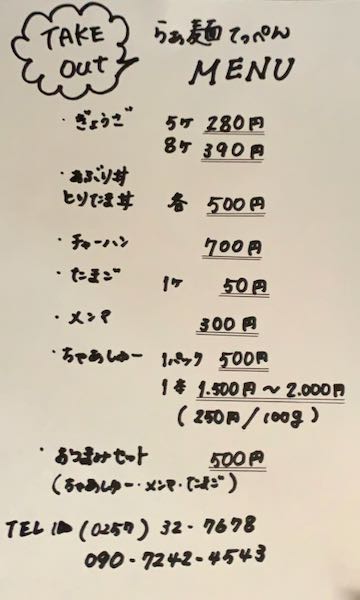 TAKE out
らぁ麺 てっぺん
MENU
・ぎょうざ 5ケ 280円
8ケ 390円
・あぶり丼
とりたま丼 各 500円
・チャーハン 700円
・たまご 1ケ 50円
・メンマ 300円
・ちゃあしゅー 1パック 500円
1本 1.500円〜2.000円
(250円/100g)
・おつまみセット 500円
(ちゃあしゅー・メンマ・たまご)
TEL (0257) 32-7678
090-7242-4543